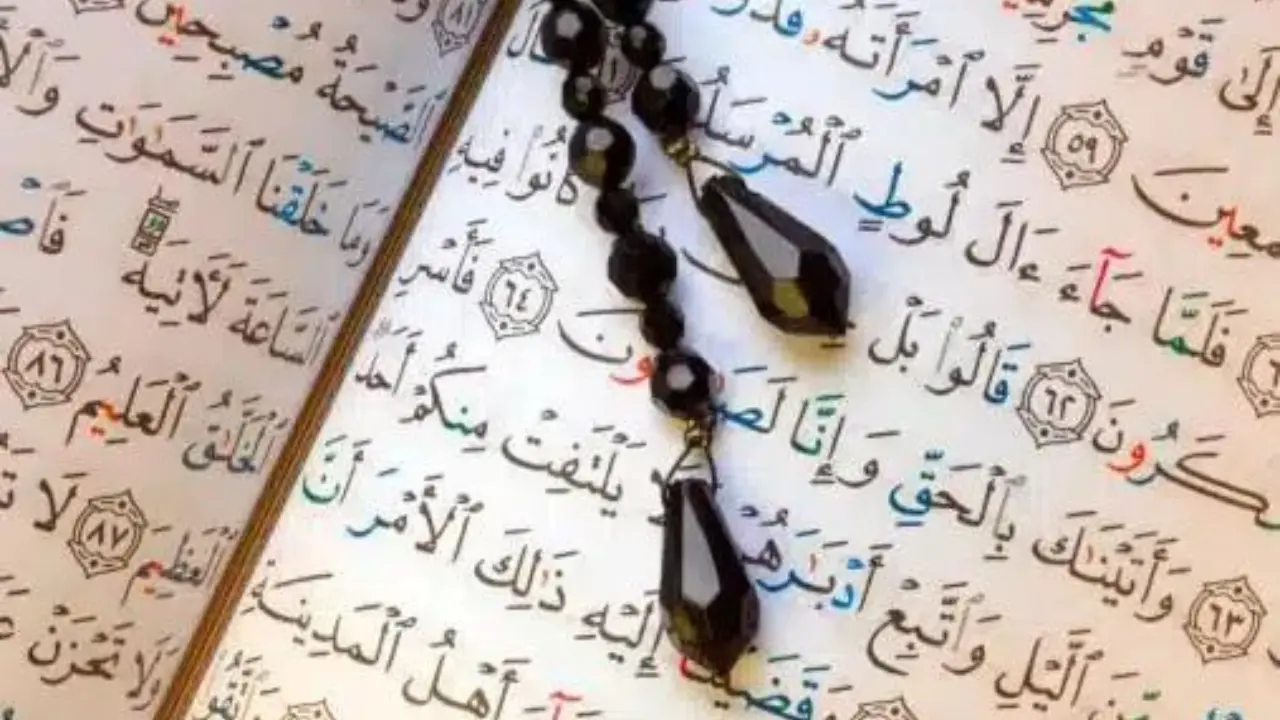 إِلَىٰ قَوْمٍ
إِلَّا ٱمْرَأَتَهُۥ ٥٩
فَلَمَّا جَآءَ ءَالَ لُوطٍ ٱلْمُرْسَلُ
كَرُونَ ٦٢ قَالُوا۟ بَلْ كَانُوا۟ فِيهِ
٦٣ وَأَتَيْنَٰكَ بِٱلْحَقِّ وَإِنَّا لَصَ ونَ ٦٤ فَأَسْرِ
ٱلَّيْلِ وَٱتَّبِعْ أَدْبَٰرَهُمْ يَلْتَفِتْ مِنكُمْ أَحَدٌ
وَقَضَيْنَآ إِلَيْهِ ذَٰلِكَ ٱلْأَمْرَ أَنَّ
أَهْلُ ٱلْمَدِينَةِ
٨١
ٱلصَّيْحَةُ مُصْبِحِينَ
وَمَا خَلَقْنَا ٱلسَّمَٰوَٰتِ
ٱلسَّاعَةَ لَـَٔاتِيَةٌ
ٱلْخَلَّٰقُ ٱلْعَلِيمُ ٨٦
ٱلْعَظِيمَ ٨٧ لَا
وَلَا تَحْزَنْ